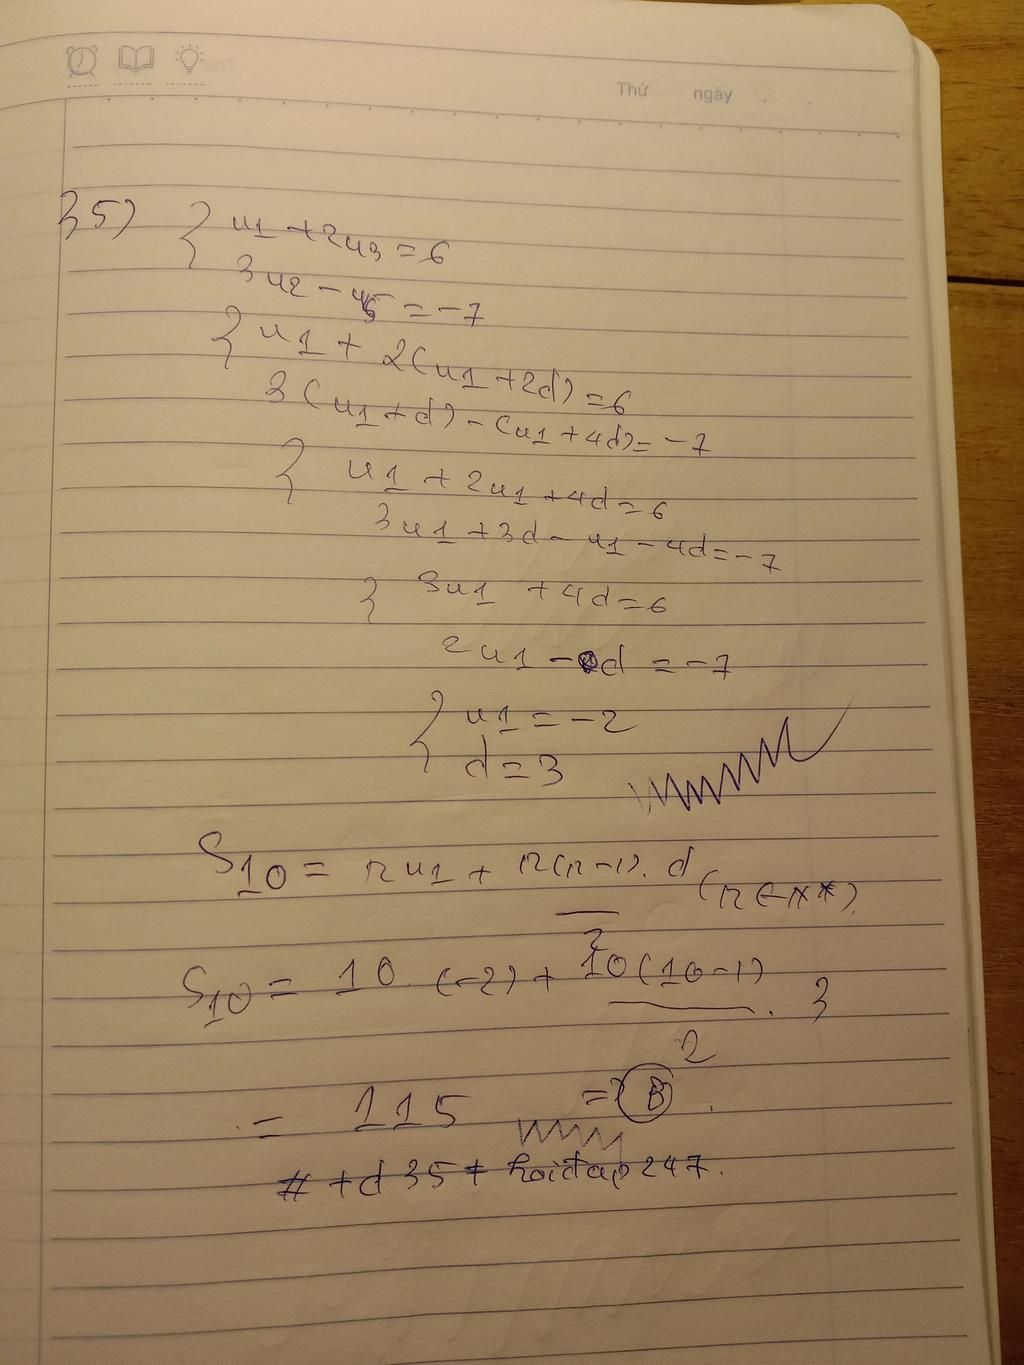 Thứ ngày
35) { u1 + 2u3 = 6
3u2 - u5 = -7
{ u1 + 2(u1 + 2d) = 6
3(u1 + d) - (u1 + 4d) = -7
{ u1 + 2u1 + 4d = 6
3u1 + 3d - u1 - 4d = -7
{ 3u1 + 4d = 6
2u1 - d = -7
{ u1 = -2
d = 3
S10 = nu1 + n(n-1)/2 . d (n ∈ N*).
S10 = 10. (-2) + 10(10-1)/2 . 3
= 115 => B.
# td35 + hoidap247.